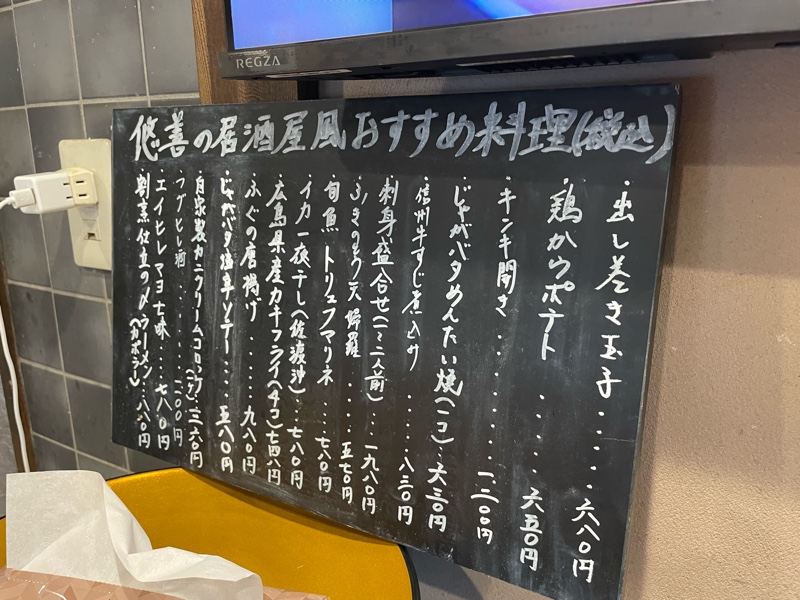 REGZA
悠善の居酒屋風おすすめ料理(税込)
・出し巻き玉子・・・・・六八〇円
鶏からポテト・・・・・六五〇円
・キンキ開き・・・・・・一二〇〇円
・じゃがバタめんたい焼(一コ)・六三〇円
・信州牛すじ煮込み・・・・・八三〇円
刺身盛合せ(一〜二人前)・・一九八〇円
ふきのとう天婦羅・・・・・五七〇円
・旬魚トリュフマリネ・・・・七八〇円
・イカ一夜干し(佐渡沖)・・・七八〇円
・広島県産カキフライ(4コ)七四八円
・ふぐの唐揚げ・・・・・九八〇円
・じゃがバタ塩辛ソテー・・・・五八〇円
・自家製カニクリームコロッケ(一ケ)三六〇円
・エイヒレマヨ七味・・・七八〇円
・割烹仕立の〆ラーメン八八〇円